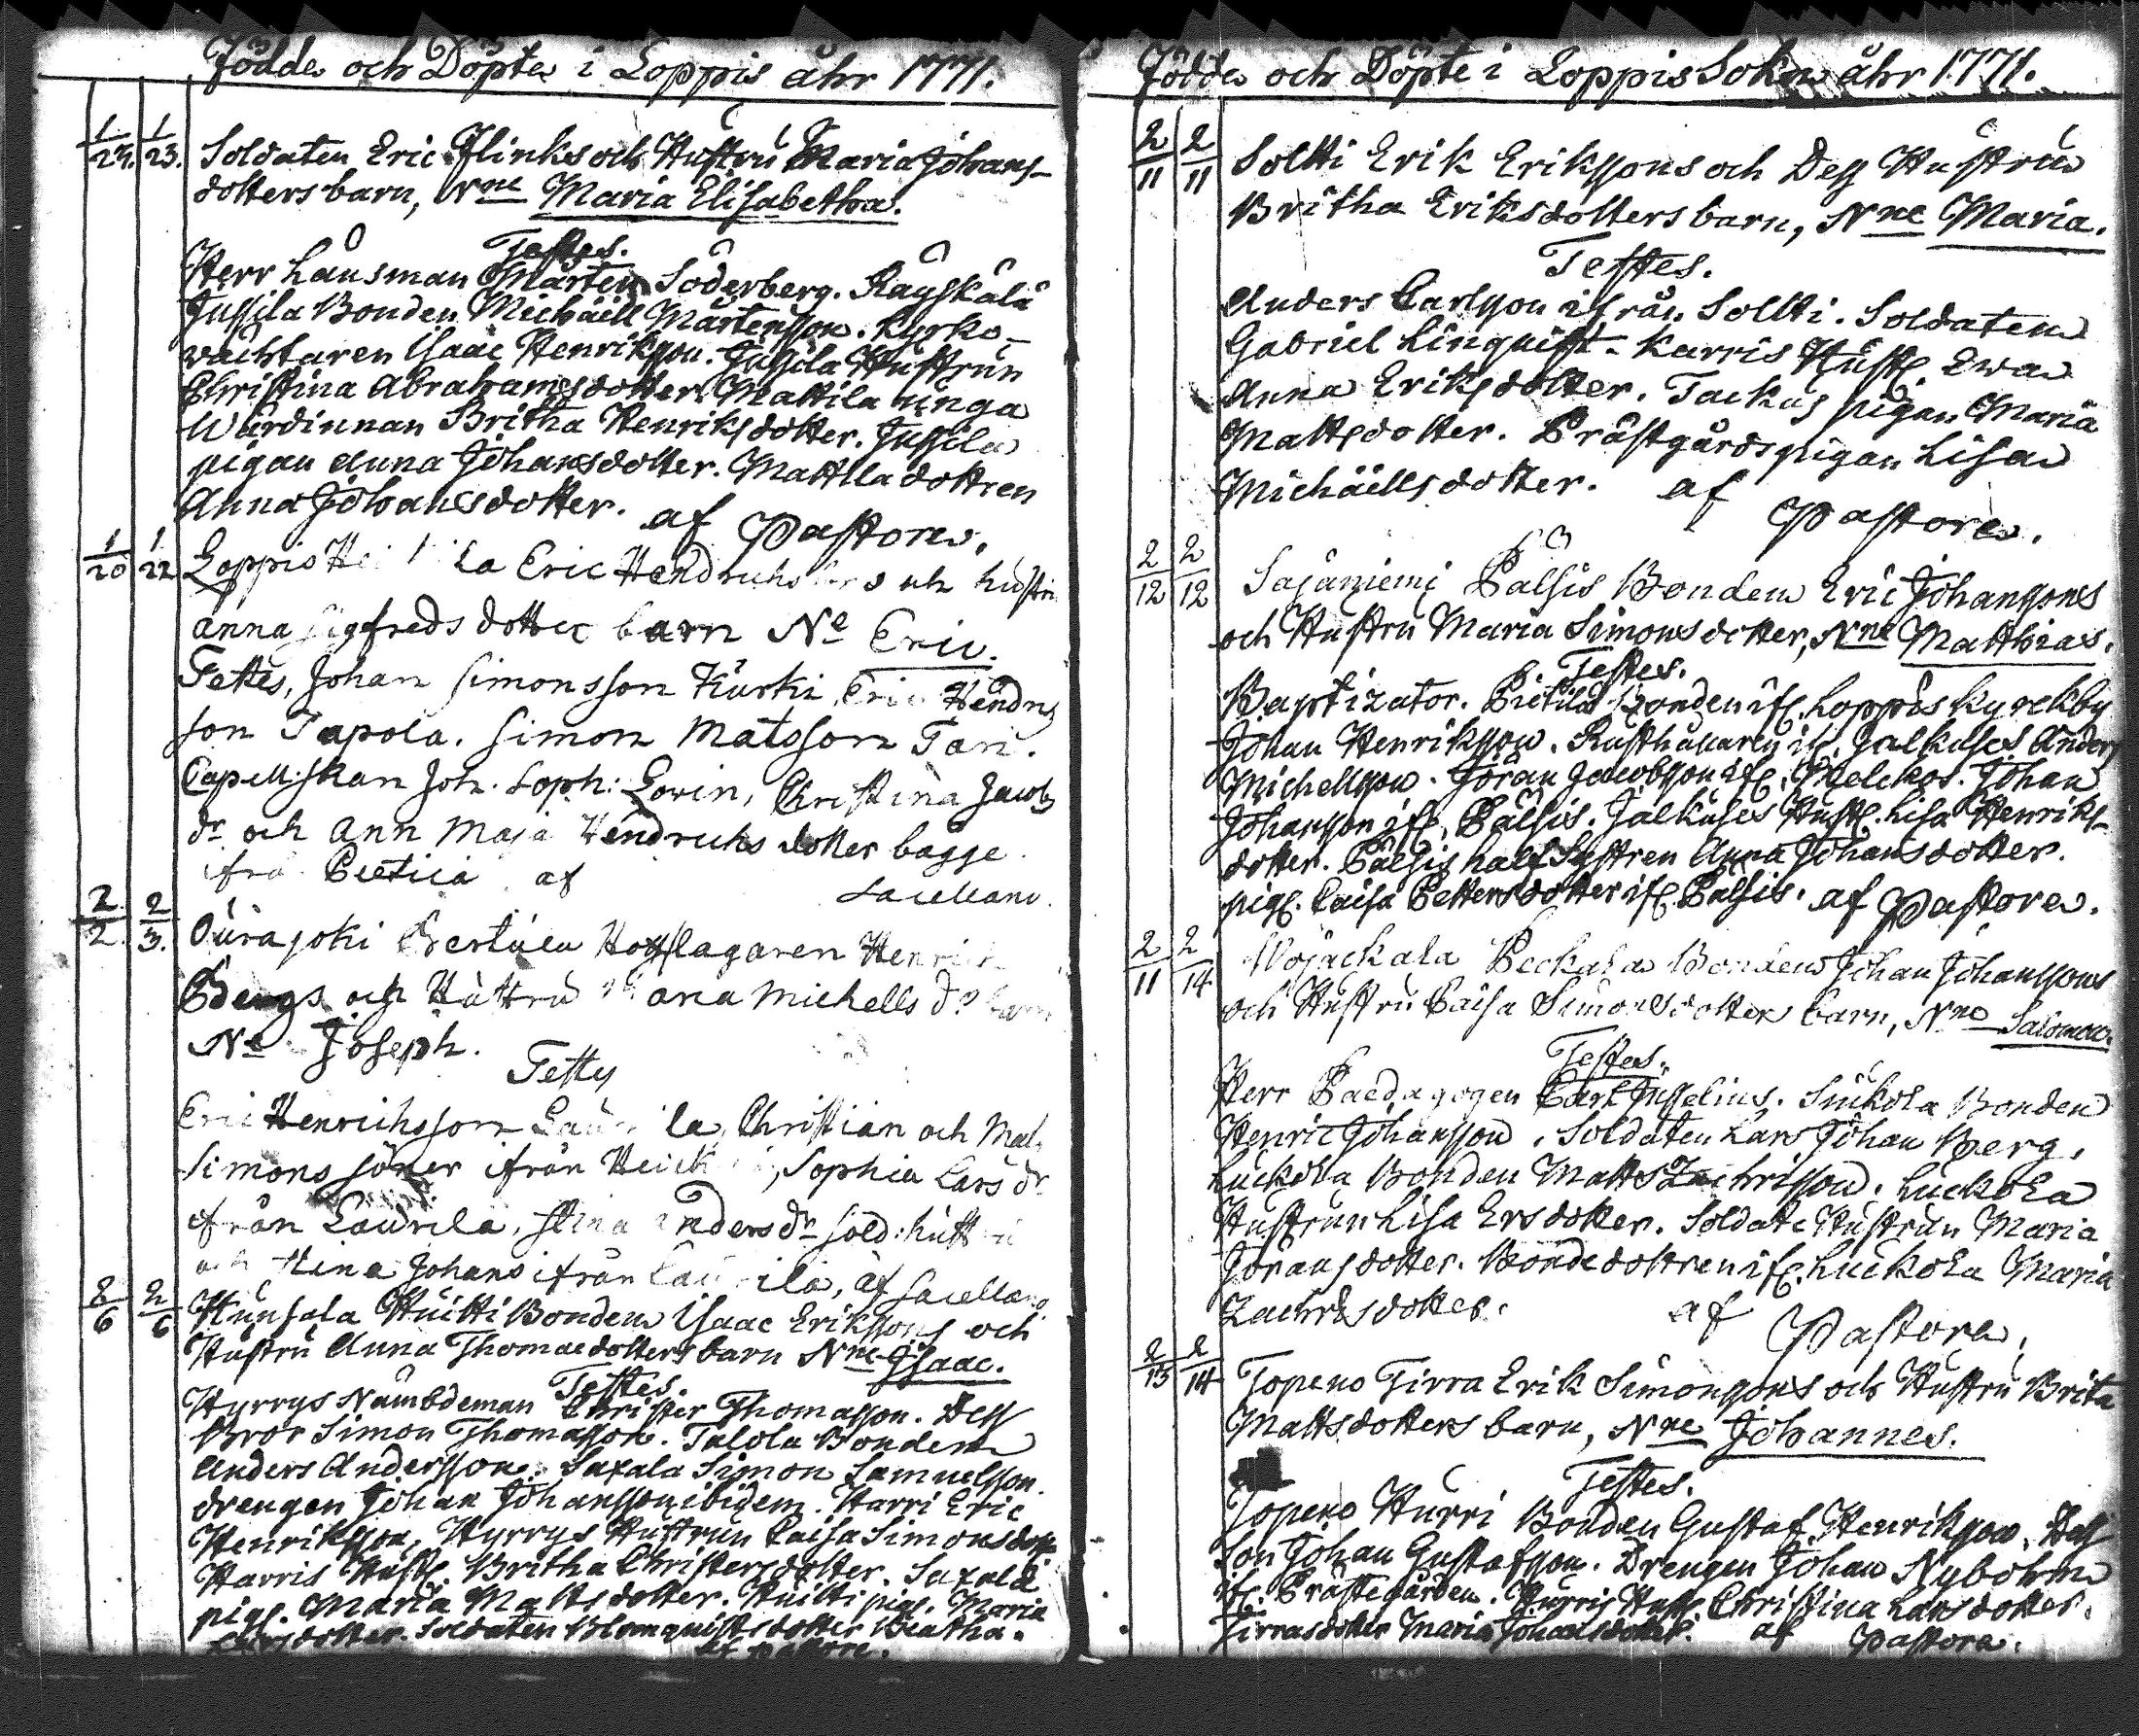 Födde och Döpte i Loppis åhr 1771.
1/23. 1/23. Soldaten Eric Flinks och Hustru Maria Johans-
dotters barn, Nne Maria Elisabetha.
Testes.
Herr Länsman Mårten Söderberg. Räyskälä
Jussila Bonden Michäell Mårtensson. Kyrko-
wächtaren Isaac Henriksson. Jussila Hustrun
Christina Abrahamsdotter. Mattila unga
Wärdinnan Britha Henriksdotter. Jussila
pigan Anna Johansdotter. Mattila dottren
Anna Johansdotter. af Pastore.
1/20 1/22 Loppis Eric Hendrichs och hustru
Anna Sigfreds dotter barn Ne Eric.
Testes, Johan Simonsson Kurki, Eric Hendrics
son Tapola. Simon Matsson Tari.
Capell:skan Joh. Soph: Lovin, Christina Jacobs
dr och Ann Maja Hendrichs dotter bägge
ifrå af Sacellano.
2/2. 2/3. Ourajoki Bertula Hofslagaren Henrich
och Hustru Maria Michells dr barn
Ne Joseph.
Testes
Eric Henrichsson Laurila, Christian och Mats
Simons söner ifrån , Sophia Lars dr
ifrån Laurila, Stina Anders dr sold: hustru
och Stina Johans ifrån Laurila, af Sacellano.
2/6 2/6 Hunsala Huitti Bonden Isaac Erikssons och
Hustru Anna Thomaedotters barn Nne Isaac.
Testes.
Hyrrys Nämbdeman Christer Thomasson. Dess
Bror Simon Thomasson. Talola Bonden
Anders Andersson. Saxala Simon Samuelsson.
drengen Johan Johansson ibidem. Harri Eric
Henriksson, Hyrrys Hustrun Caisa Simonsdotter
Harris Hust. Britha Christersdotter. Saxala
pig. Maria Mattsdotter. Huitti pig. Maria
Larsdotter. Soldaten Blomquists dotter Beatha.
af Pastore.
Födde och Döpte i Loppis Sokn åhr 1771.
2/11 2/11 Soltti Erik Erikssons och Dess Hustru
Britha Eriksdotters barn, Nne Maria.
Testes.
Anders Carlsson ifrån Soltti. Soldaten
Gabriel Linquist. Karris Hust. Ewa
Anna Eriksdotter. Tackus pigan Maria
Mattsdotter. Prästgårdspigan Lisa
Michäellsdotter. af Pastore.
2/12 2/12 Sajaniemi Pälsis Bonden Eric Johanssons
och Hustru Maria Simonsdotter, Nne Matthias.
Testes.
Baptizator. Pietilä Bonden if. Loppis Kyrckby
Johan Henriksson. Rusthållaren if. Jalkuses Anders
Michellsson. Jöran Jacobsson if. Melckos. Johan
Johansson if. Pälsis. Jalkuses Hust. Lisa Henriks-
dotter. Pälsis half Systren Anna Johansdotter.
pig. Caisa Pettersdotter if. Pälsis. af Pastore.
2/11 2/14 Wojackala Peckala Bonden Johan Johanssons
och Hustru Caisa Simonsdotter barn, Nne Salomon.
Testes.
Herr Paedagogen Carl Jusselius. Siukola Bonden
Henric Johansson. Soldaten Lars Johan Berg.
Luckola Bonden Matts Zachrisson. Luckola
Hustrun Lisa Ersdotter. Soldate Hustrun Maria
Jöransdotter. Bondedottren if. Luckola Maria
Zachrisdotter. af Pastore.
2/13 2/14 Topeno Tirra Erik Simonssons och Hustru Brita
Mattsdotters barn, Nne Johannes.
Testes.
Topeno Hurri Bonden Gustaf Henriksson. Dess
Son Johan Gustafsson. Drengen Johan Nybohm
if. Prästegården. Hurris Hust. Christina Larsdotter.
Tirrasdotter Maria Johansdotter. af Pastore.